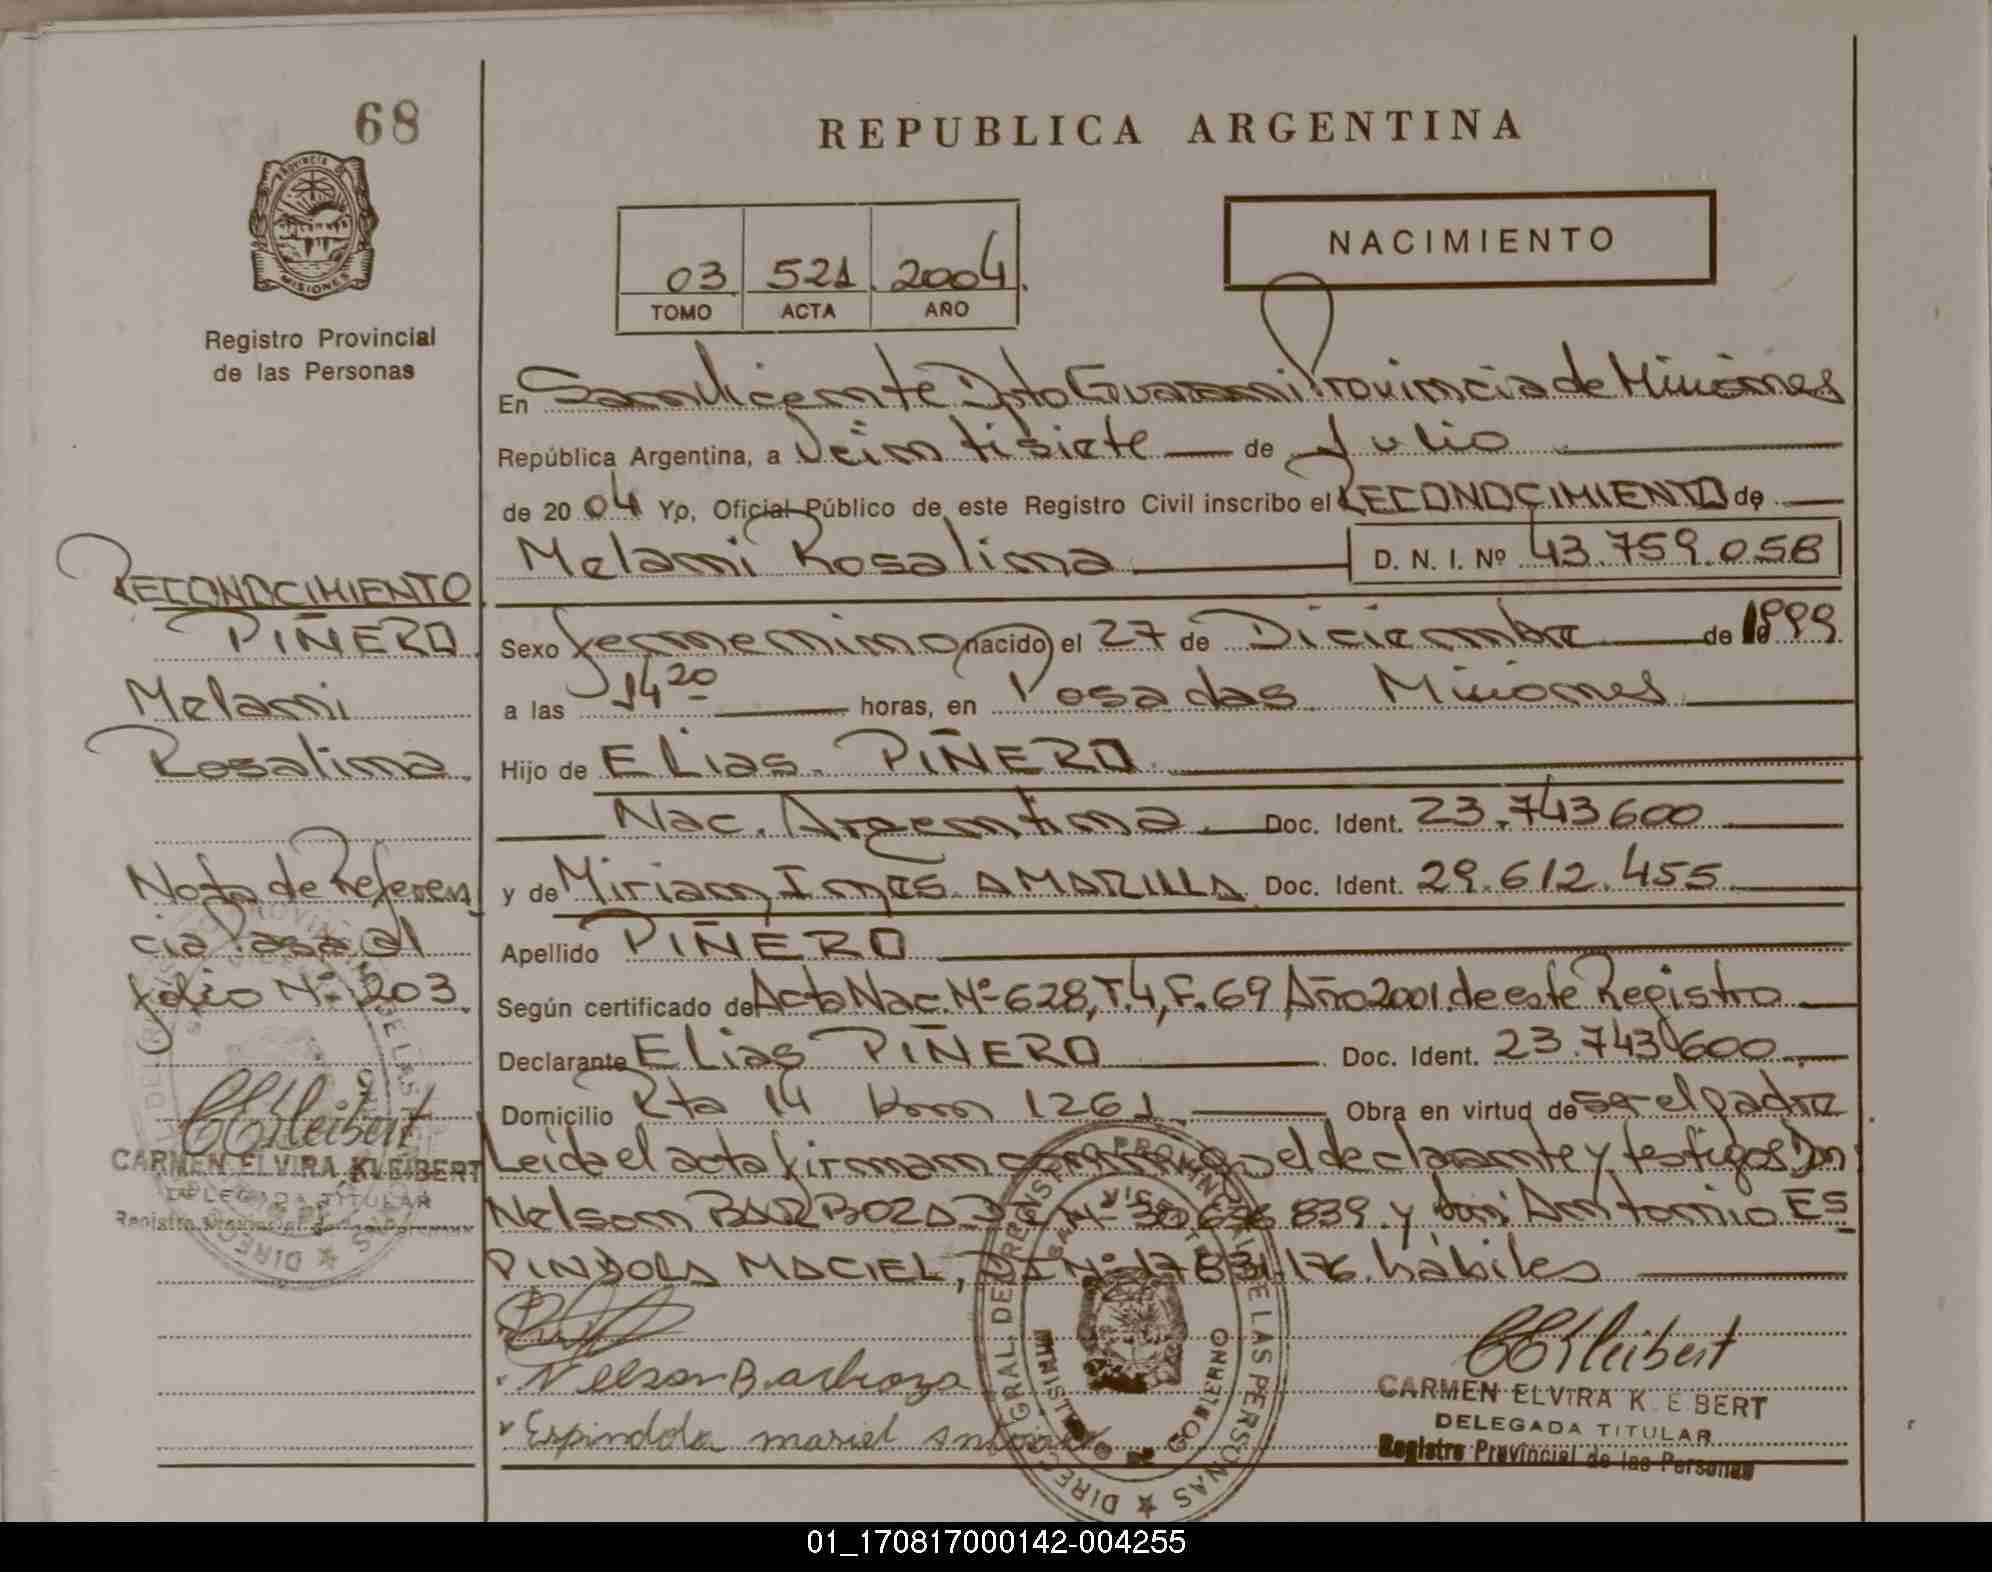 68
PROVINCIA DE
MISIONES
Registro Provincial
de las Personas
REPUBLICA ARGENTINA
03 521 2004
TOMO ACTA AÑO
NACIMIENTO
En San Vicente Dpto Guarani Provincia de Misiones
República Argentina, a Veintisiete de Julio
de 2004 Yo, Oficial Público de este Registro Civil inscribo el RECONOCIMIENTO de
Melani Rosalina D. N. I. Nº 43.759.058
Sexo femenino nacido el 27 de Diciembre de 1999
a las 14 20 horas, en Posadas Misiones
Hijo de Elias PIÑERO
Nac. Argentina Doc. Ident. 23.743.600
y de Miriam Ines AMARILLA Doc. Ident. 29.612.455
Apellido PIÑERO
Según certificado de Acta Nac. Nº 628, T.4, F.69 Año 2001 de este Registro
Declarante Elias PIÑERO Doc. Ident. 23.743.600
Domicilio Rta 14 Km 1261 Obra en virtud de ser el padre
Leida el acta firman conmigo el declarante y testigos Don
Nelson BARBOZA Nº 839 y don Antonio ES
PINDOLA MACIEL, Nº 17.831.176 hábiles
Nelson Barboza
Espindola mariel
CEKleibert
CARMEN ELVIRA K E BERT
DELEGADA TITULAR
Registro Provincial de las Personas
DIREC. GRAL. DEL REGISTRO PROVINCIAL DE LAS PERSONAS
SAN VICENTE
MINISTERIO DE GOBIERNO
RECONOCIMIENTO
PIÑERO
Melani
Rosalina
Nota de Referen
cia Pasa al
folio Nº 203
CEKleibert
CARMEN ELVIRA KLEIBERT
DELEGADA TITULAR
Registro Provincial de las Personas
01_170817000142-004255